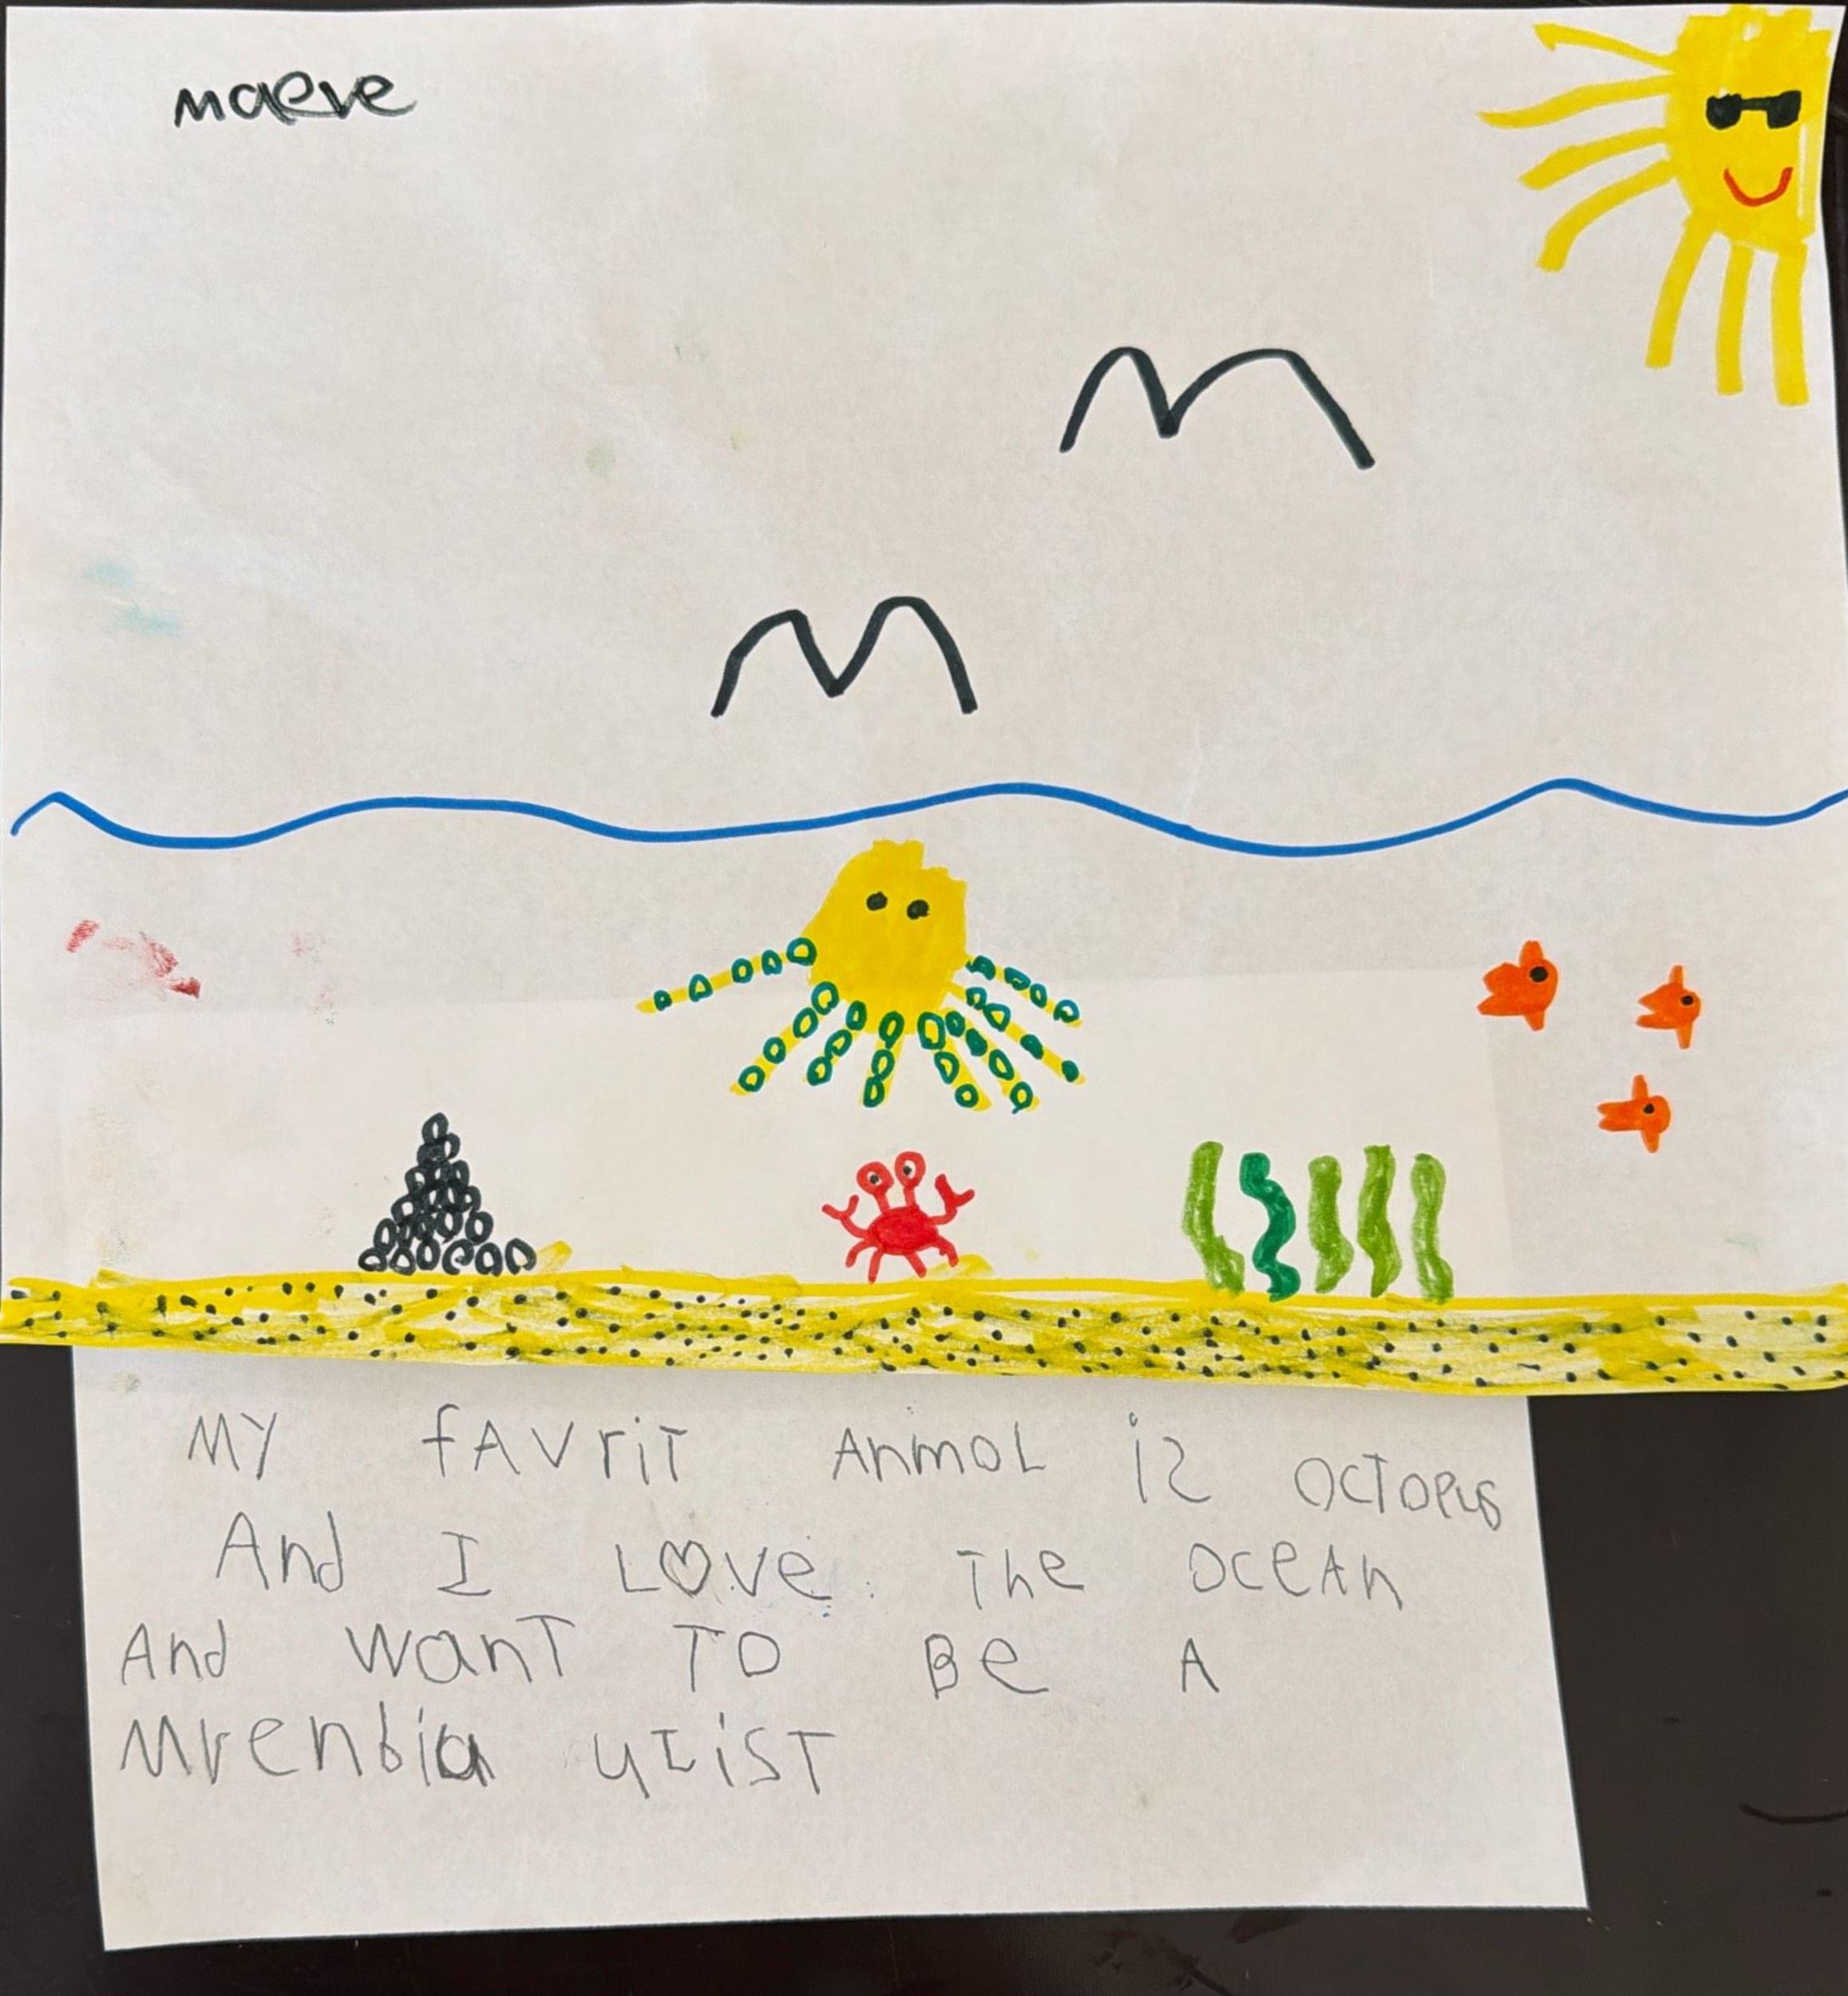 maeve
MY fAVriT AnmOL iS OCTOPUS
And I LOVe The OceAn
And wanT TO Be A
Mrenbia yIiST